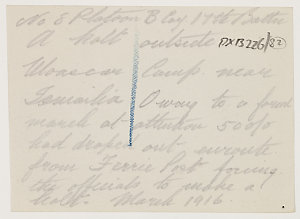 No 8 Platoon B Coy 17th Battn
A halt outside PXB226/82
Moascar Camp near
Ismailia Owing to a forced
march at attention 50 o/o
had dropped out enroute
from Ferrie Post forcing
the officials to make a
halt. March 1916